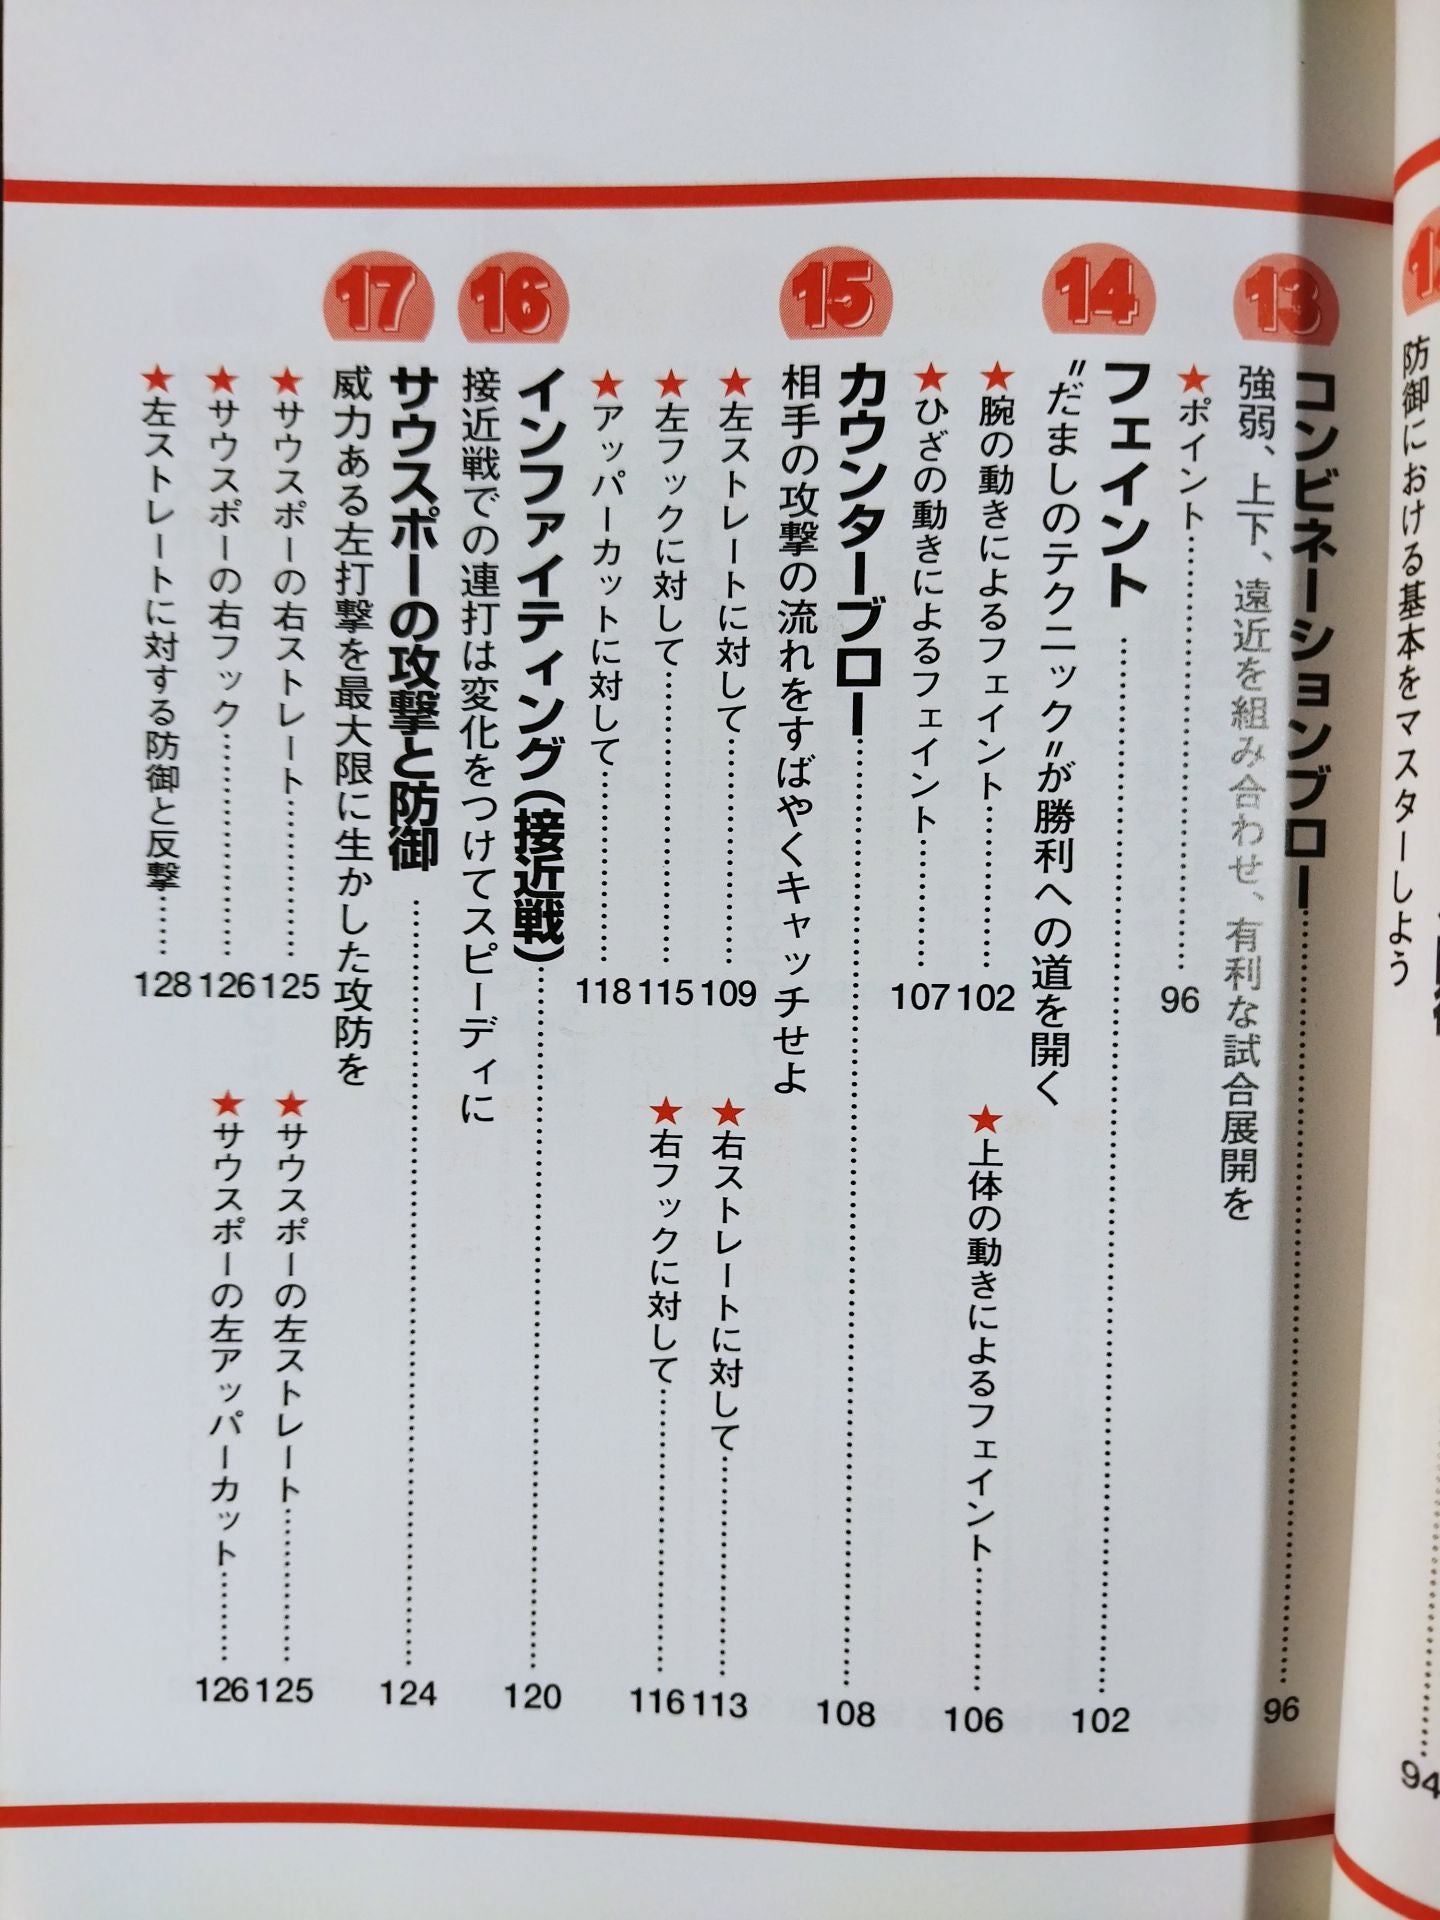 防御における基本をマスターしよう
94
13
コンビネーションブロー……96
強弱、上下、遠近を組み合わせ、有利な試合展開を
★ポイント……96
14
フェイント……102
“だましのテクニック”が勝利への道を開く
★腕の動きによるフェイント……102
★上体の動きによるフェイント……106
★ひざの動きによるフェイント……107
15
カウンターブロー……108
相手の攻撃の流れをすばやくキャッチせよ
★左ストレートに対して……109
★右ストレートに対して……113
★左フックに対して……115
★右フックに対して……116
★アッパーカットに対して……118
16
インファイティング(接近戦)……120
接近戦での連打は変化をつけてスピーディに
17
サウスポーの攻撃と防御……124
威力ある左打撃を最大限に生かした攻防を
★サウスポーの右ストレート……125
★サウスポーの左ストレート……125
★サウスポーの右フック……126
★サウスポーの左アッパーカット……126
★左ストレートに対する防御と反撃……128